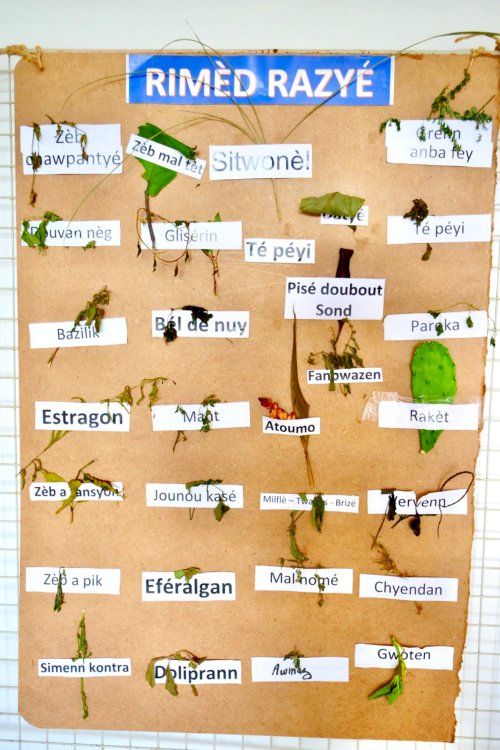 RIMÈD RAZYÉ
Zèb
chawpantyé
Zéb mal tèt
Sitwonè!
Grenn
anba fey
Douvan nèg
Glisérin
Té péyi
Té péyi
Pisé doubout
Sond
Bazilik
Bèl de nuy
Paroka
Fanbwazen
Estragon
Mant
Atoumo
Rakèt
Zèb a fansyon
Jounou kasé
Milflè – Twaréts - Brizé
Vervenn
Zèb a pik
Eféralgan
Mal nomé
Chyendan
Simenn kontra
Doliprann
Gwoten